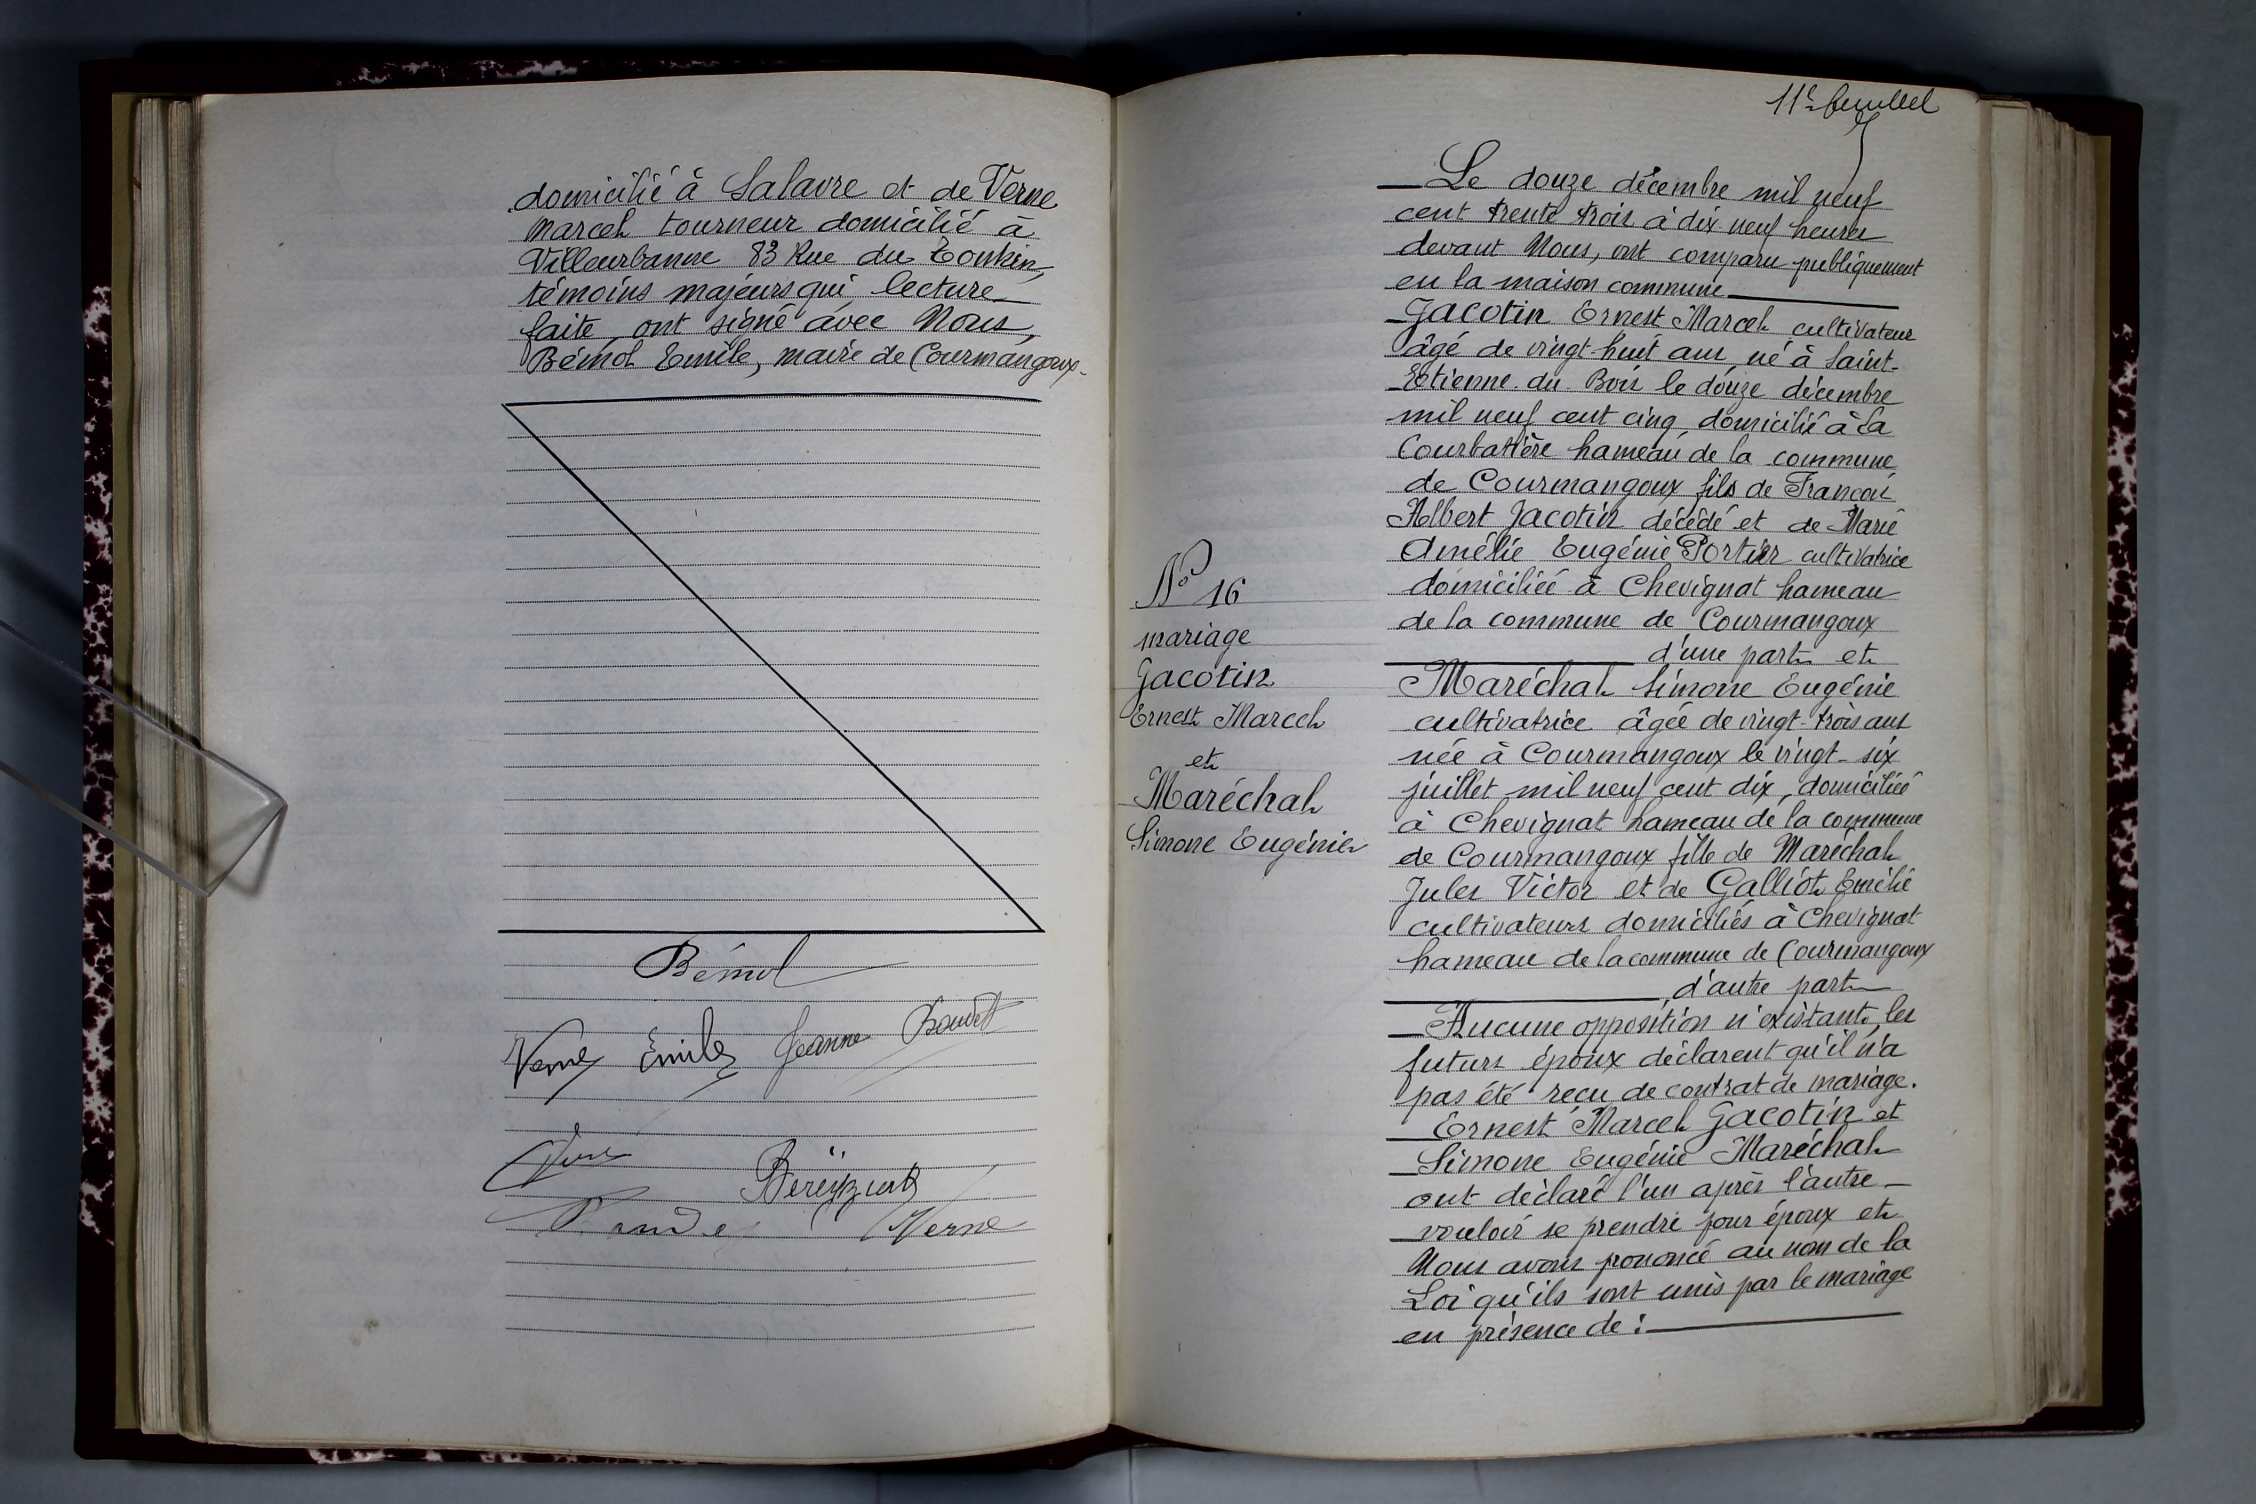 domicilié à Salavre et de Verne
Marcel tourneur domicilié à
Villeurbanne 83 Rue du Tonkin,
témoins majeurs qui, lecture
faite, ont signé avec Nous,
Bémol Emile, maire de Courmangoux.
Bémol
Verne Emile Jeanne
Verne
11e feuillet
Le douze décembre mil neuf
cent trente trois à dix neuf heures
devant Nous, ont comparu publiquement
en la maison commune
Gacotin Ernest Marcel cultivateur
âgé de vingt-huit ans, né à Saint-
Etienne du Bois le douze décembre
mil neuf cent cinq, domicilié à La
Courbatière hameau de la commune
de Courmangoux fils de François
Albert Jacotin décédé et de Marie
Amélie Eugénie Portier cultivatrice
domiciliée à Chevignat hameau
de la commune de Courmangoux
d'une part et
Maréchal Simone Eugénie
cultivatrice âgée de vingt-trois ans
née à Courmangoux le vingt-six
juillet mil neuf cent dix, domiciliée
à Chevignat hameau de la commune
de Courmangoux fille de Maréchal
Jules Victor et de Galliot Emélie
cultivateurs domiciliés à Chevignat
hameau de la commune de Courmangoux
d'autre part
Aucune opposition n'existant, les
futurs époux déclarent qu'il n'a
pas été reçu de contrat de mariage.
Ernest Marcel Gacotin et
Simone Eugénie Maréchal
ont déclaré l'un après l'autre
vouloir se prendre pour époux et
Nous avons prononcé au nom de la
Loi qu'ils sont unis par le mariage
en présence de :
No 16
mariage
Gacotin
Ernest Marcel
et
Maréchal
Simone Eugénie